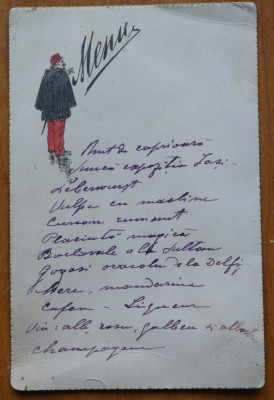 Menu
Brut de caprioară
Suncă expoziția Iași-
Leberwurst
Vulpe cu masline
Curcan rumenit
Placintă magică
Baclavale a la Sultan
Gogosi oracolu de la Delfi
Pere, mandarine
Cafea - Liqueur
Vin: alb, rosu, galben si
champagne